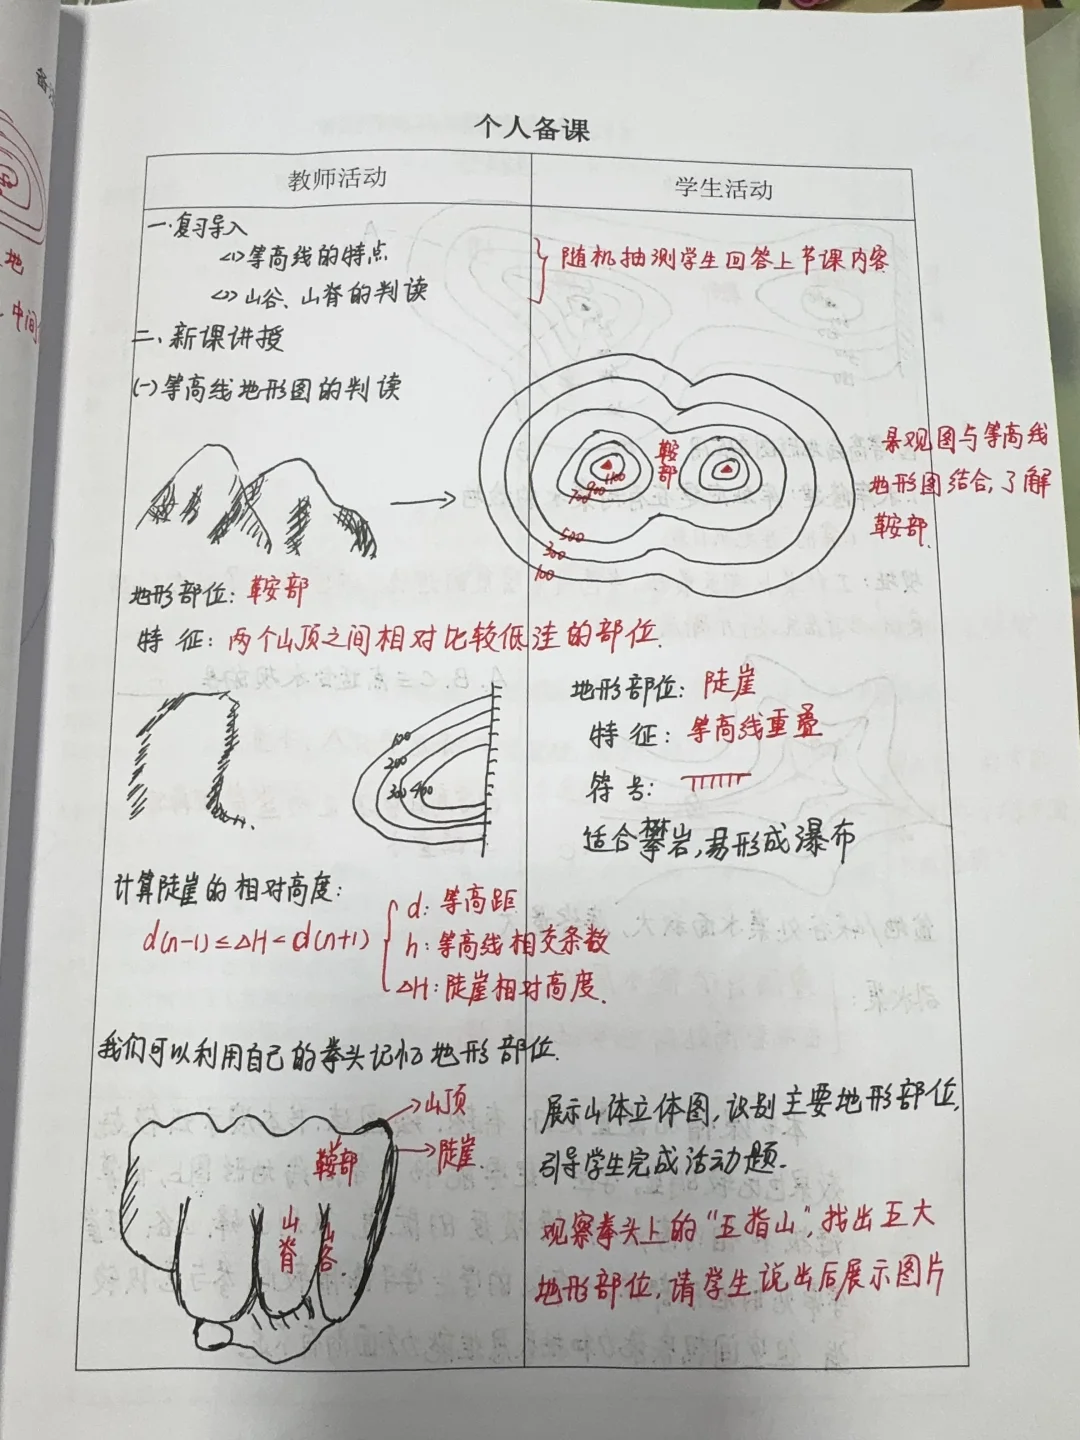 个人备课
教师活动
学生活动
一.复习导入
<1>等高线的特点
<2>山谷、山脊的判读
随机抽测学生回答上节课内容
二、新课讲授
(一)等高线地形图的判读
鞍部
700 900 1100
500
300
100
景观图与等高线
地形图结合,了解
鞍部.
地形部位:鞍部
特征:两个山顶之间相对比较低洼的部位.
100
200
300 400
地形部位:陡崖
特征:等高线重叠
符号:
适合攀岩,易形成瀑布
计算陡崖的相对高度:
d(n-1)≤△H<d(n+1)
d:等高距
n:等高线相交条数
△H:陡崖相对高度.
我们可以利用自己的拳头记忆地形部位.
山顶
陡崖
鞍部
山脊
山谷
展示山体立体图,识别主要地形部位,
引导学生完成活动题.
观察拳头上的"五指山",找出五大
地形部位,请学生说出后展示图片
地
中间